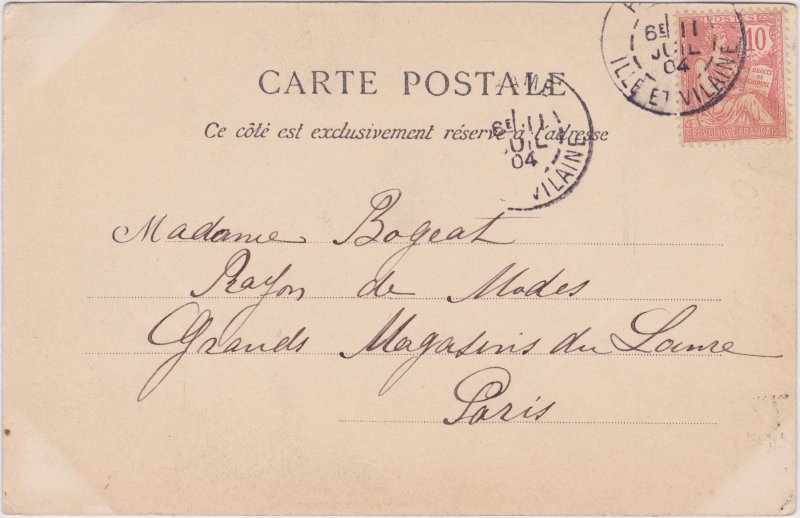 POSTES
10
DROITS DE L'HOMME
REPUBLIQUE FRANÇAISE
6E 11
JUIL
04
ILLE ET VILAINE
CARTE POSTALE
Ce côté est exclusivement réservé à l'adresse
6E 11
JUIL
04
VILAINE
Madame Bogeat
Rayon de Modes
Grands Magasins du Louvre
Paris